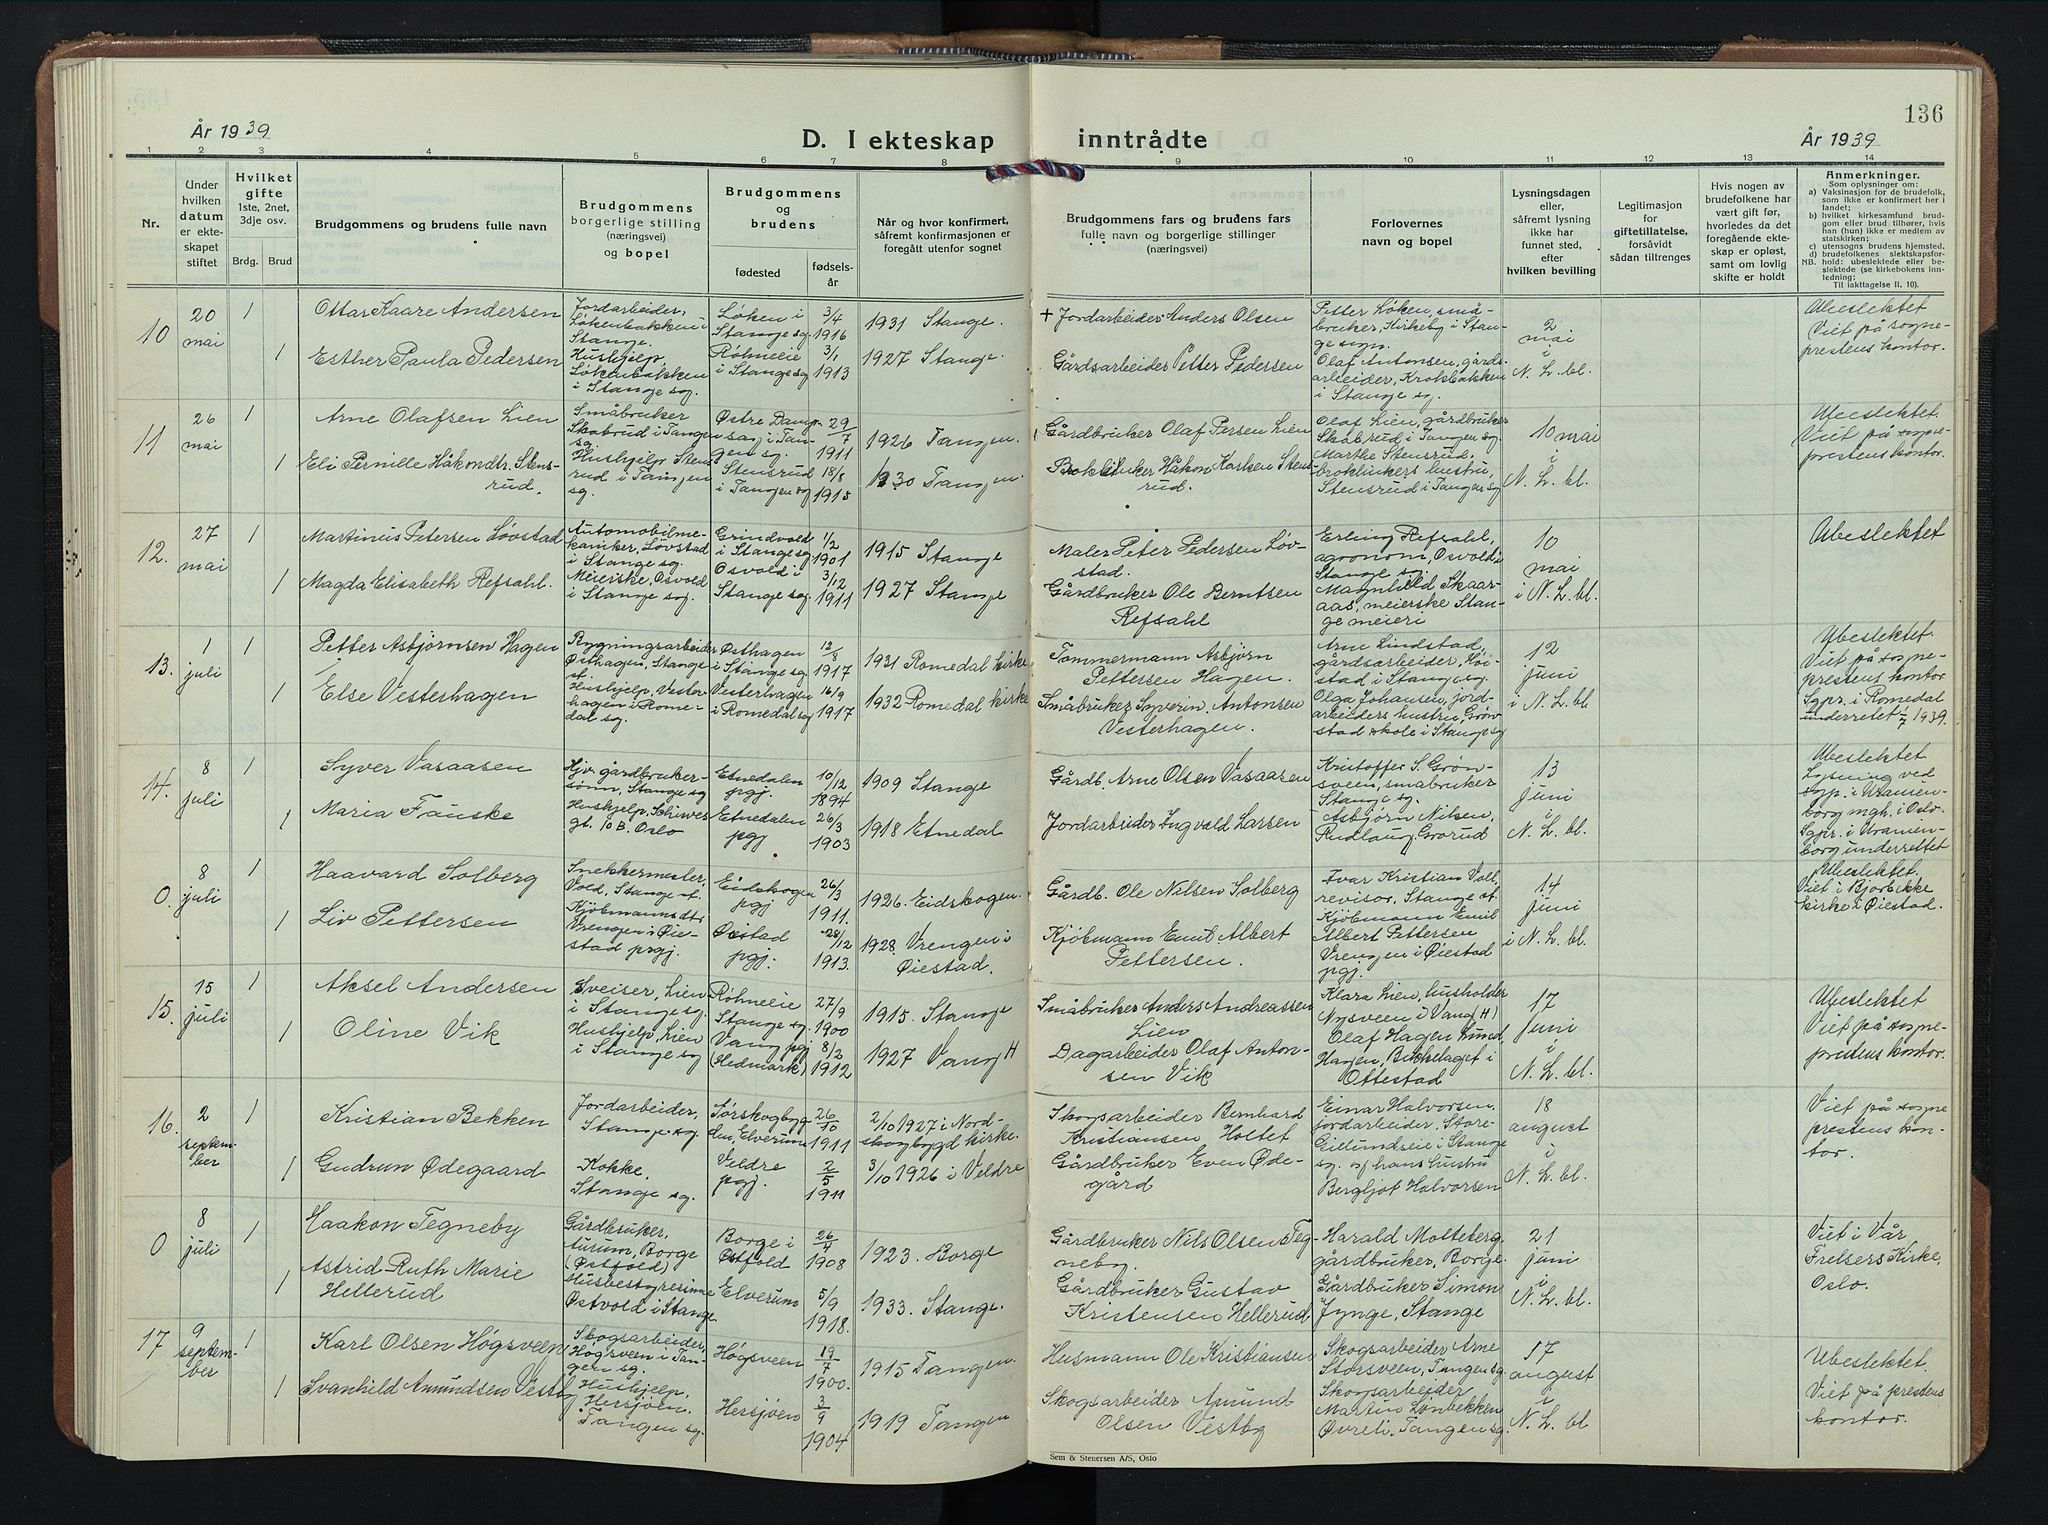 136
År 1939
D. I ekteskap inntrådte
År 1939
1 2 3 4 5 6 7 8 9 10 11 12 13 14
Nr.
Under
hvilken
datum
er ekte-
skapet
stiftet
Hvilket
gifte
1ste, 2net,
3dje osv.
Brdg. Brud
Brudgommens og brudens fulle navn
Brudgommens
borgerlige stilling
(næringsvei)
og bopel
Brudgommens
og
brudens
fødested
fødsels-
år
Når og hvor konfirmert,
såfremt konfirmasjonen er
foregått utenfor sognet
Brudgommens fars og brudens fars
fulle navn og borgerlige stillinger
(næringsvei)
Forlovernes
navn og bopel
Lysningsdagen
eller,
såfremt lysning
ikke har
funnet sted,
efter
hvilken bevilling
Legitimasjon
for
giftetillatelse,
forsåvidt
sådan tiltrenges
Hvis nogen av
brudefolkene har
vært gift før,
hvorledes da det
foregående ekte-
skap er opløst,
samt om lovlig
skifte er holdt
Anmerkninger.
Som oplysninger om:
a) Vaksinasjon for de brudefolk,
som ikke er konfirmert her i
landet;
b) hvilket kirkesamfund brud-
gom eller brud tilhører, hvis
han (hun) ikke er medlem av
statskirken;
c) utensogns brudens hjemsted.
d) brudefolkenes slektskapsfor-
NB. hold: ubeslektede eller be-
slektede (se kirkebokens inn-
ledning;
Til iakttagelse II. 10).
10
20
mai
1
Ottar Kaare Andersen
Jordarbeider,
Løkenbakken i
Stange.
Løken i
Stange sg.
3/4
1916
1931 Stange.
+ Jordarbeider Anders Olsen
Petter Løken, små-
bruker, Kirkeby i Stan-
ge sogn.
2
mai
i
N. L. bl.
Ubeslektet
Viet på sogne-
prestens kontor.
1
Esther Paula Pedersen
Hushjelp,
Løkenbakken
i Stange sg.
Røhneeie
i Stange sg
3/1
1913
1927 Stange.
Gårdsarbeider Petter Pedersen
Olaf Antonsen, gårds-
arbeider, Krokbakken
i Stange sg.
11
26
mai
1
Arne Olafsen Lien
Småbruker
Skabrud i Tangen
sg.
Østre Damp-
sag i Tan-
gen sg.
29/7
1911
1926 Tangen.
Gårdbruker Olaf Persen Lien
Olaf Lien, gårdbruker
Skabrud i Tangen sg.
10 mai
i
N. L. bl.
Ubeslektet.
Viet på sogne-
prestens kontor.
1
Eli Pernille Håkondtr. Stens-
rud.
Hushjelp Stens-
rud i Tangen
sg.
Stensrud
i Tangen sg
18/8
1915
1930 Tangen.
Håkon Karlsen Stens-
rud.
Marthe Stensrud,
hustru,
Stensrud i Tangen sg
12.
27
mai
1
Martinus Petersen Løvstad
Automobilme-
kaniker, Løvstad
i Stange sg.
Grindvold
i Stange sg
1/2
1901
1915 Stange
Maler Peter Pedersen Løv-
stad.
Erling Refsahl,
agronom, Osvold i
Stange sg.
10
mai
i N. L. bl.
Ubeslektet
1
Magda Elisabeth Refsahl.
Meierske, Osvold
i Stange sg.
Osvold i
Stange sg.
3/12
1911
1927 Stange
Gårdbruker Ole Berntsen
Refsahl
Magnhild Skaar-
aas, meierske Stan-
ge meieri
13.
1
juli
1
Petter Asbjørnsen Hagen
Bygningsarbeider
Østhagen, Stange
st.
Østhagen
i Stange sg
12/8
1917
1931 Romedal kirke
Tømmermann Asbjørn
Pettersen Hagen.
Arne Lindstad,
gårdsarbeider, Høi-
stad i Stange sg.
12
juni
i N. L. bl
Ubeslektet.
Viet på sogne-
prestens kontor
Sgpr. i Romedal
underrettet 1/7 1939.
1
Else Vesterhagen
Hushjelp, Vester-
hagen i Rome-
dal sg.
Vesterhagen
i Romedal sg
16/9
1917
1932 Romedal kirke
Småbruker Syverin Antonsen
Vesterhagen.
Olga Johansen, jord-
arbeiders hustru, Grøv-
stad skole i Stange sg
14.
8
juli
1
Syver Vasaasen
Hjv. gårdbruker-
sønn, Stange sg
Etnedalen
pgj.
10/12
1894
1909 Stange
Gårdb. Arne Olsen Vasaasen
Kristoffer S. Grøn-
sveen, småbruker
Stange sg.
13
juni
i
N. L. bl.
Ubeslektet
Lysning ved
sgpr. i Uranien-
borg mgh. i Oslo.
Sgpr. i Uranien-
borg underrettet
1
Maria Fauske
Hushjelp, Schives
gt. 10 B. Oslo
Etnedalen
pgj
26/3
1903
1918 Etnedal
Jordarbeider Ingvald Larsen
Asbjørn Nilsen,
Rudlaug, Grorud
0.
8
juli
1
Haavard Solberg
Snekkermester,
Vold, Stange st.
Eidskogen
pgj
26/3
1911.
1926. Eidskogen.
Gårdb. Ole Nilsen Solberg
Ivar Kristian Voll
revisor, Stange st.
14
juni
i N. L. bl.
Ubeslektet.
Viet i Bjorbekk
kirke i Øiestad.
1
Liv Pettersen
Kjøbmannsdtr
Vrengen i Øie-
stad pgj.
Øiestad
pgj.
28/12
1913.
1928 Vrengen i
Øiestad.
Kjøbmann Emil Albert
Pettersen.
Kjøbmann Emil
Albert Pettersen
Vrengen i Øiestad
pgj.
15.
15
juli
1
Aksel Andersen
Sveiser, Lien
i Stange sg.
Røhneeie
Stange sg.
27/9
1900
1915. Stange
Småbruker Anders Andreassen
Lien
Klara Lien, husholder
Nysveen i Vang (H)
17
juni
i
N. L. bl.
Ubeslektet
Viet på sogne-
prestens kontor.
1
Oline Vik
Hushjelp, Lien
i Stange sg
Vang pgj
(Hedmark)
8/2
1912
1927 Vang H
Dagarbeider Olaf Anton-
sen Vik
Olaf Hagen
Hagen, Bekkelaget i
Ottestad
16.
2
septem-
ber
1
Kristian Bekken
Jordarbeider,
Stange sg.
Sørskogbyg-
den, Elverum
26/10
1911
2/10 1927 i Nord-
skogbygd kirke.
Skogsarbeider Bernhard
Kristiansen Holtet
Einar Halvorsen,
jordarbeider, Store-
Gillundseie i Stange
sg.
18
august
i
N. L. bl.
Viet på sogne
prestens kon-
tor.
1
Gudrun Ødegaard
Kokke,
Stange sg.
Veldre
pgj.
2/5
1911
3/10 1926 i Veldre
Gårdbruker Even Øde-
gård
og hans hustru
Bergljot Halvorsen
0
8
juli
1
Haakon Tegneby
Gårdbruker,
Borge
(Østfold)
Borge i
Østfold
26/4
1908
1923. Borge
Gårdbruker Nils Olsen Teg-
neby.
Harald Molteberg
gårdbruker, Borge.
21
juni
i
N. L. bl.
Viet i Vår
Frelsers Kirke,
Oslo.
1
Astrid Ruth Marie
Hellerud
Husbestyrerinne
Østvold i Stange
Elverum
5/9
1918.
1933. Stange.
Gårdbruker Gustav
Kristensen Hellerud
Gårdbruker Simon
Jynge, Stange
17
9
septem-
ber
1
Karl Olsen Høgsveen
Skogsarbeider,
Høgsveen i Tan-
gen sg.
Høgsveen
19/7
1900.
1915 Tangen.
Husmann Ole Kristiansen
Skogsarbeider Arne
Storsveen, Tangen sg.
17
august
i
N. L. bl
Ubeslektet.
Viet på prestens
kontor.
1
Svanhild Amundsen Vestby
Hushjelp,
Hersjøen,
Tangen sg.
Hersjøen
3/9
1904
1919 Tangen
Skogsarbeider Amund
Olsen Vestby
Skogsarbeider
Martin Lønbekken
Øvreli, Tangen sg.
Sem & Stenersen A/S, Oslo